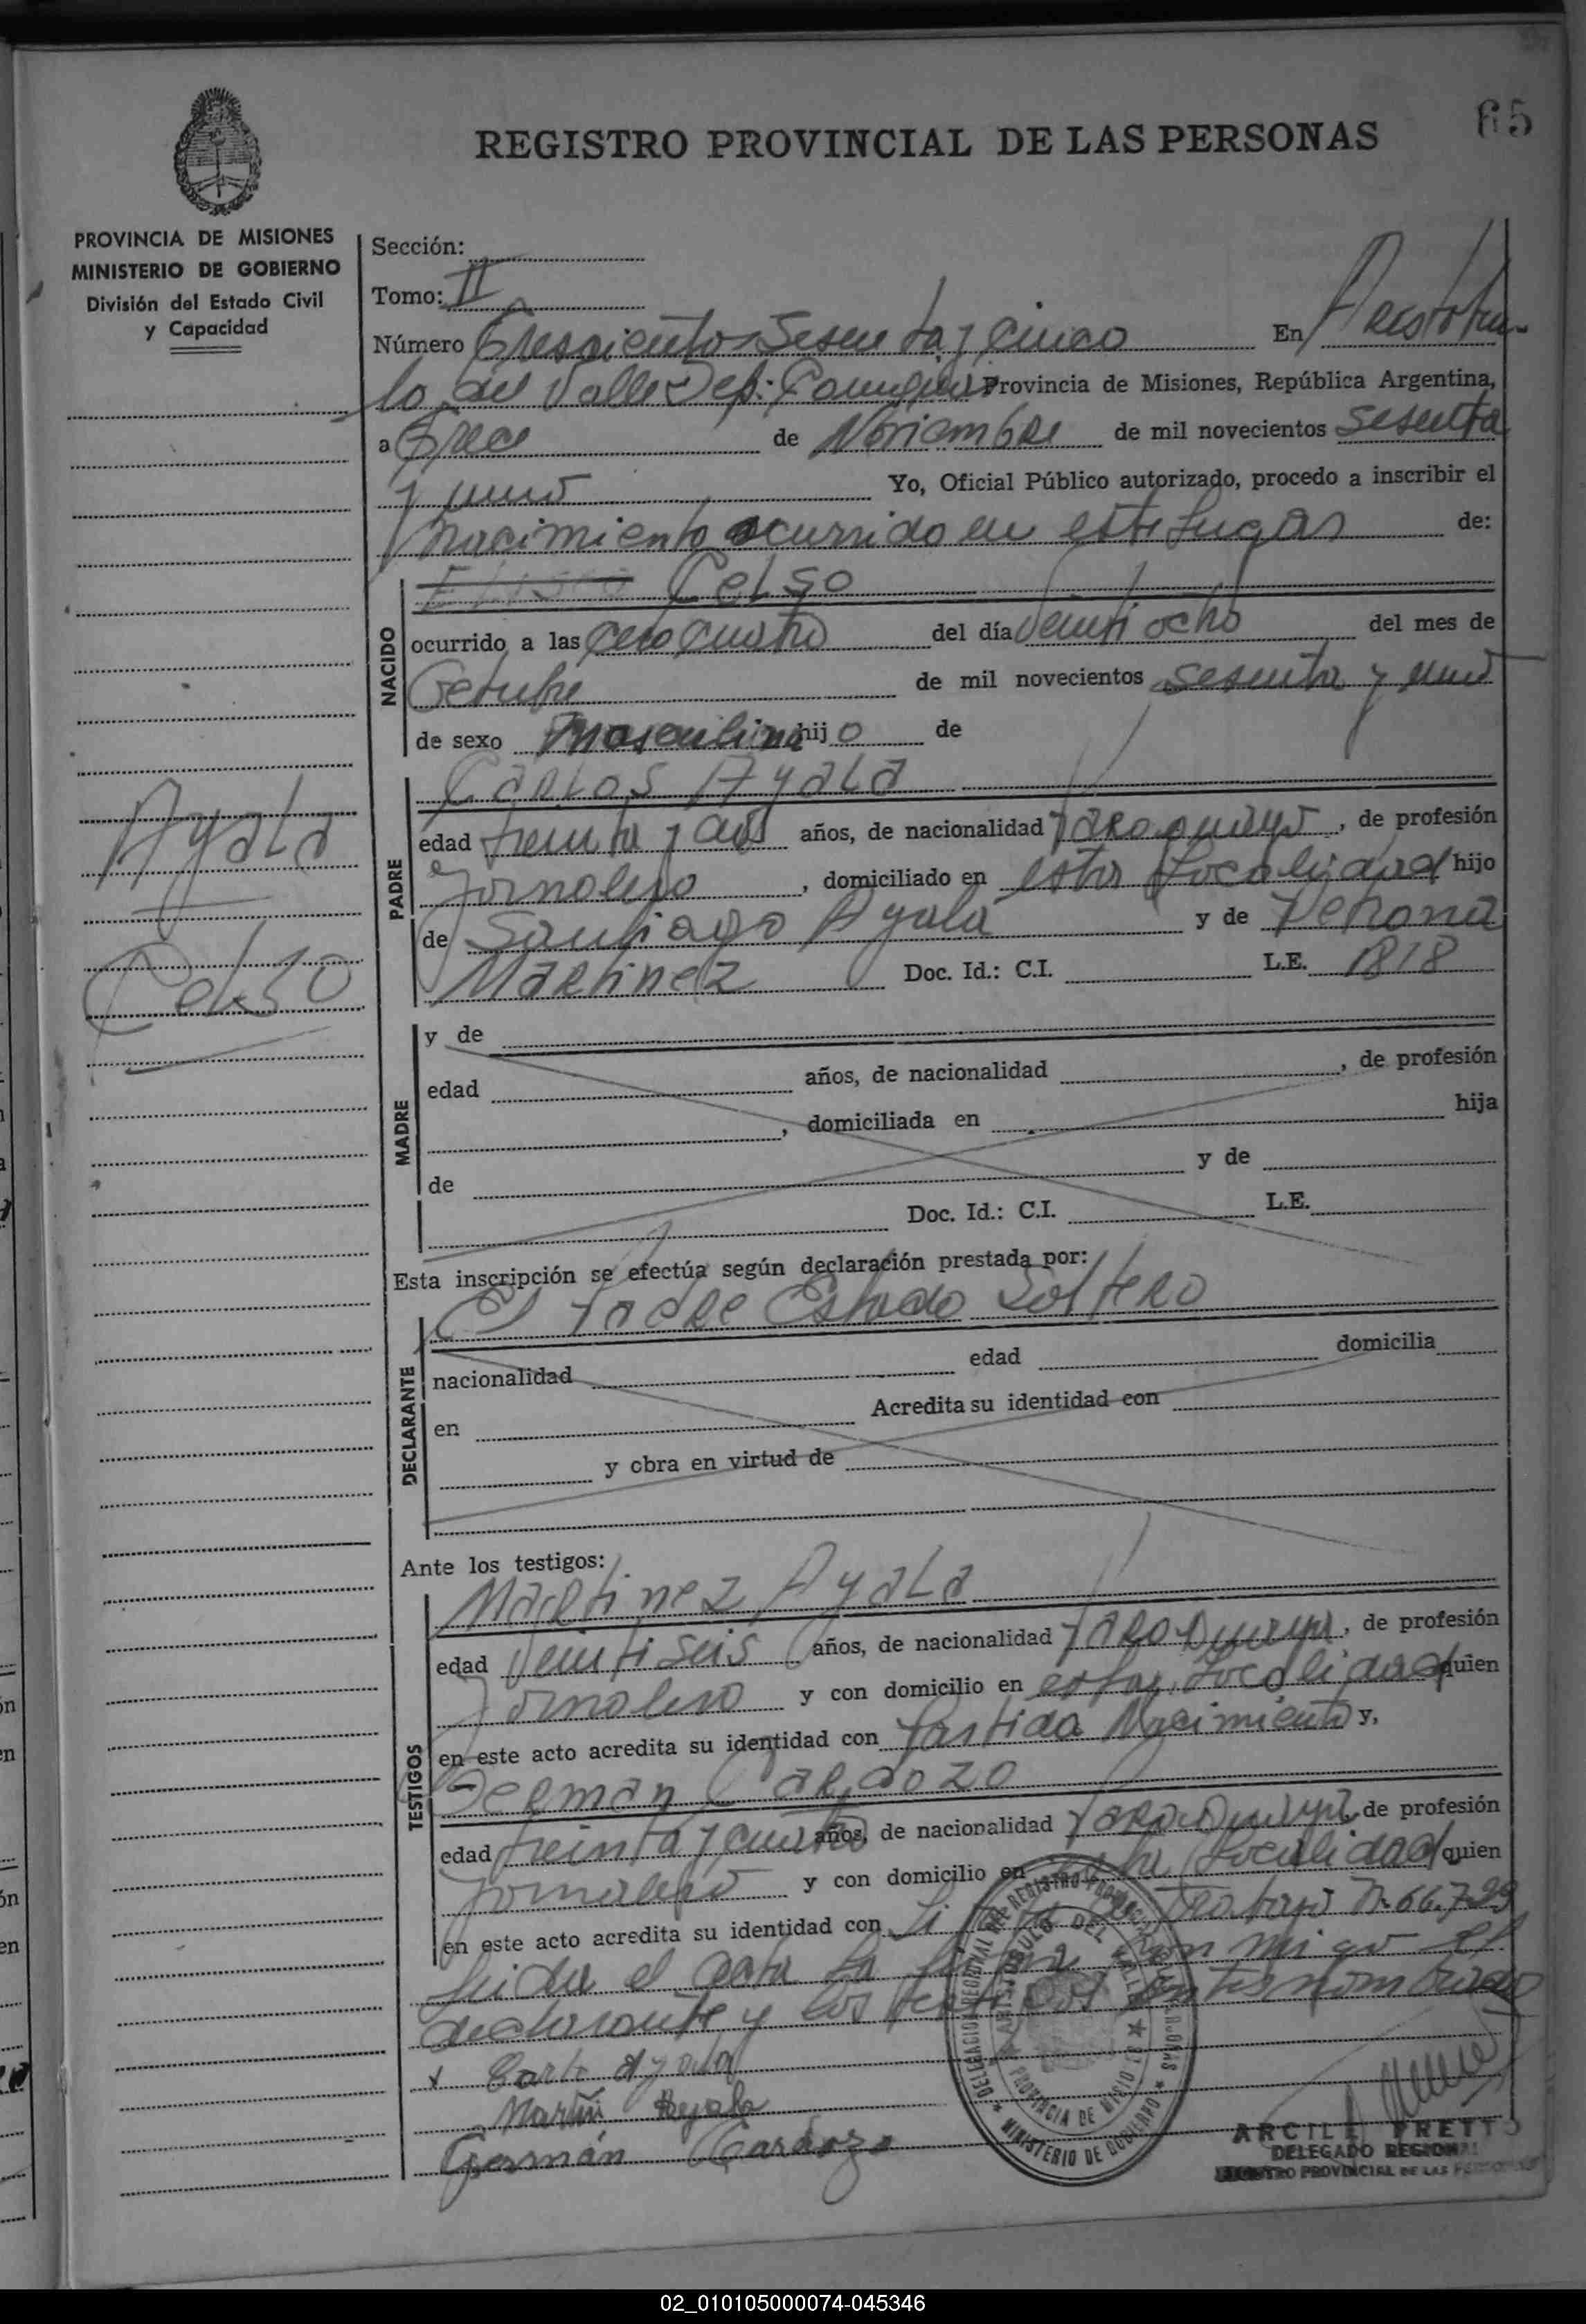 65
REGISTRO PROVINCIAL DE LAS PERSONAS
PROVINCIA DE MISIONES
MINISTERIO DE GOBIERNO
División del Estado Civil
y Capacidad
Sección:
Tomo: II
Número Trescientos Sesenta y Cinco En Aristobu-
lo del Valle Dep: Provincia de Misiones, República Argentina,
a Trece de Noviembre de mil novecientos Sesenta
y uno Yo, Oficial Público autorizado, procedo a inscribir el
Nacimiento ocurrido en este Lugar de:
NACIDO
Celso
ocurrido a las cero cuatro del día Veinti ocho del mes de
Octubre de mil novecientos sesenta y uno
de sexo Masculino hijo de
Ayala
Celso
PADRE
Carlos Ayala
edad treinta y años, de nacionalidad Paraguayo, de profesión
Jornalero, domiciliado en esta Localidad hijo
de Santiago Ayala y de Petrona
Martinez Doc. Id.: C.I. L.E. 1818
MADRE
y de
edad años, de nacionalidad , de profesión
, domiciliada en hija
de y de
Doc. Id.: C.I. L.E.
Esta inscripción se efectúa según declaración prestada por:
El Padre Estado Soltero
DECLARANTE
nacionalidad edad domicilia
en Acredita su identidad con
y obra en virtud de
Ante los testigos:
TESTIGOS
Martinez Ayala
edad Veinti seis años, de nacionalidad Paraguaya, de profesión
Jornalero y con domicilio en esta Localidad quien
en este acto acredita su identidad con Partida Nacimiento y,
German Cardozo
edad treinta y cuatro años, de nacionalidad Paraguaya, de profesión
Jornalero y con domicilio en esta Localidad quien
en este acto acredita su identidad con Trabajo N° 66.729
Leida el acta la firma conmigo el
declarante y los testigos antes nombrado
x Carlo Ayala
Martin Ayala
Germán Cardozo
DELEGACION REGIONAL DEL REGISTRO PROVINCIAL DE LAS PERSONAS
ARISTOBULO DEL VALLE
PROVINCIA DE MISIONES
MINISTERIO DE GOBIERNO
PRETTO
DELEGADO REGIONAL
REGISTRO PROVINCIAL DE LAS PERSONAS
02_010105000074-045346